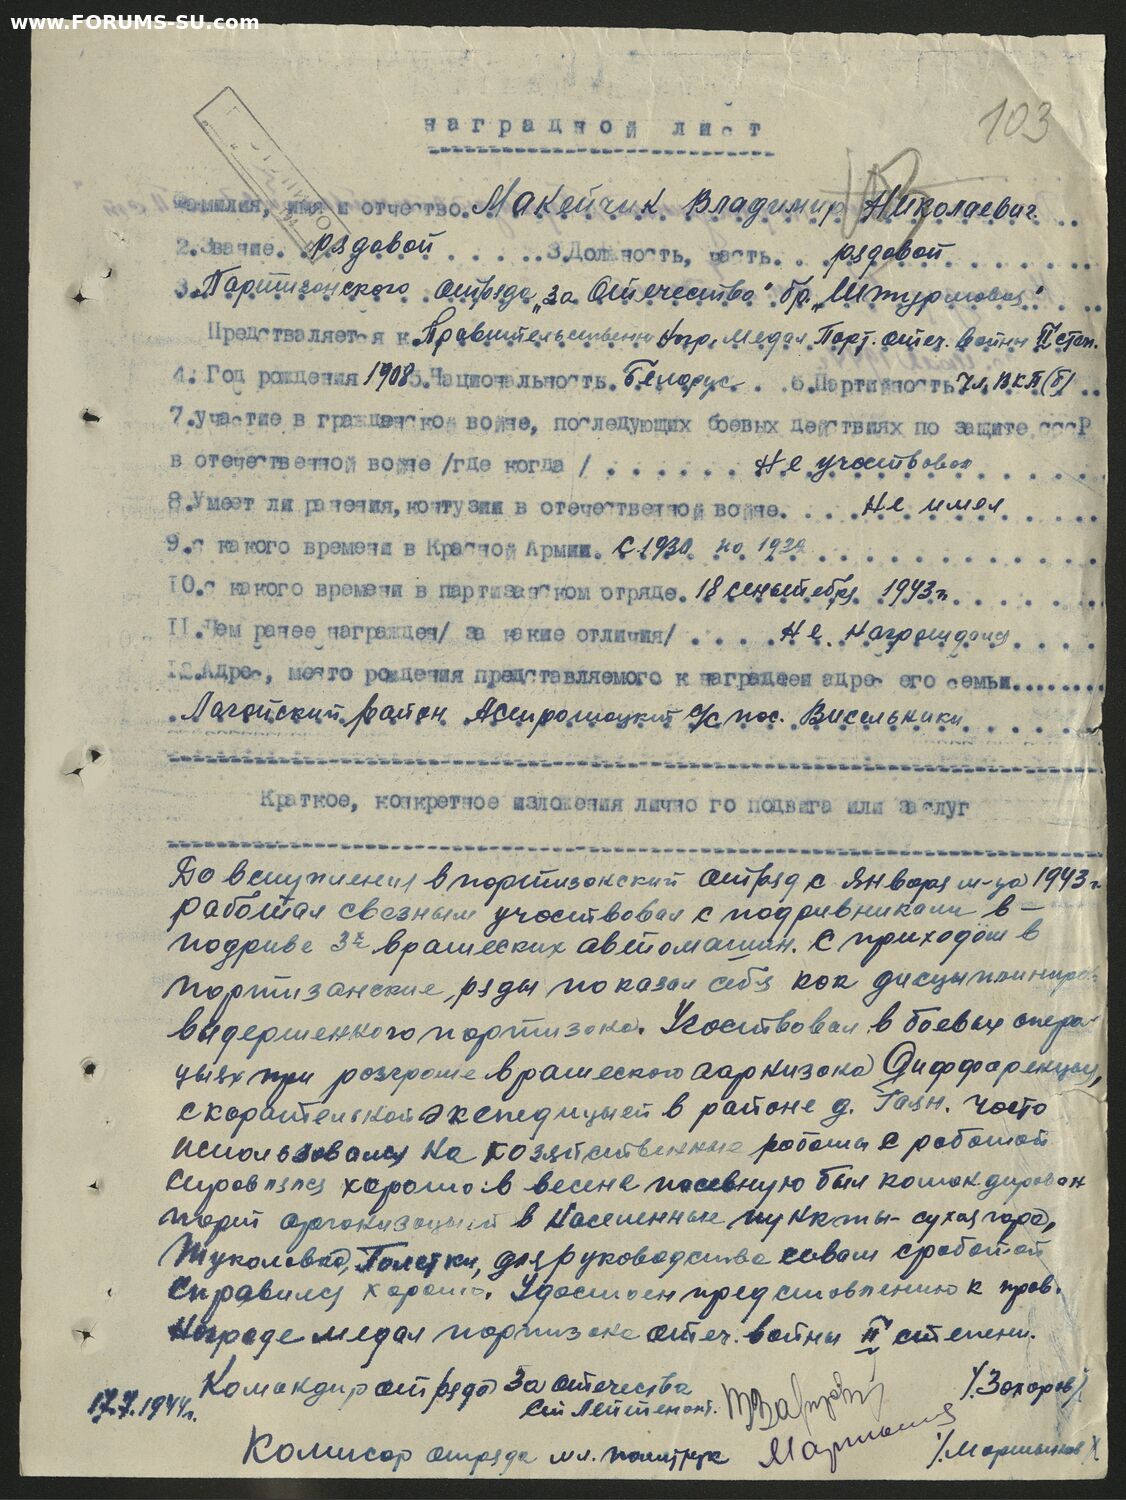 www.FORUMS-SU.com
103
наградной лист
Фамилия, имя и отчество. Макейчик Владимир Николаевич.
2.Звание. рядовой 3.Должность, часть. рядовой
3. Партизанского отряда „за Отечество" бр. „Штурмовая"
Представляется к Правительственн нагр. медал Парт. отеч. войны II степ.
4. Год рождения 1908 5. Национальность. Белорус 6. Партийность Чл. ВКП(б)
7.участие в гражданской войне, последующих боевых действиях по защите СССР
в отечественной войне /где когда / Не участвовал
8.Умеет ли ранения, контузии в отечественной войне. Не имел
9.с какого времени в Красной Армии. С 1930 по 1932
10.с какого времени в партизанском отряде. 18 сентября 1943 г
11.Чем ранее награжден/ за какие отличия/ Не награждался
12.Адрес, место рождения представляемого к награден адрес его семьи
Лагойский район с/с пос. Висельники
Краткое, конкретное изложения лично го подвига или заслуг
До вступления в партизанский отряд с января м-ца 1943 г
работал связным участвовал с подрывниками в-
подриве 3х вражеских автомашин. С приходом в
партизанские ряды показал себя как
выдерженного партизана. Участвовал в боевых опера-
цыях при разгроме вражеского гарнизона
экспедицией в районе д. Гаян. часто
использовался на хозяйственные работы с работой
справлялся хорошо в весене посевную был командирован
парт организацией в населенные пункты- сухая гора,
для руководства севом с работой
справился хорошо. Удостоен представлению к прав.
награде медал партизана отеч. войны II степени.
Командир отряда За отечества
17.7.1944 г.
Ст Лейтенант. /.Захаров/
Комисар отряда мл. политрук /.Мартынов/